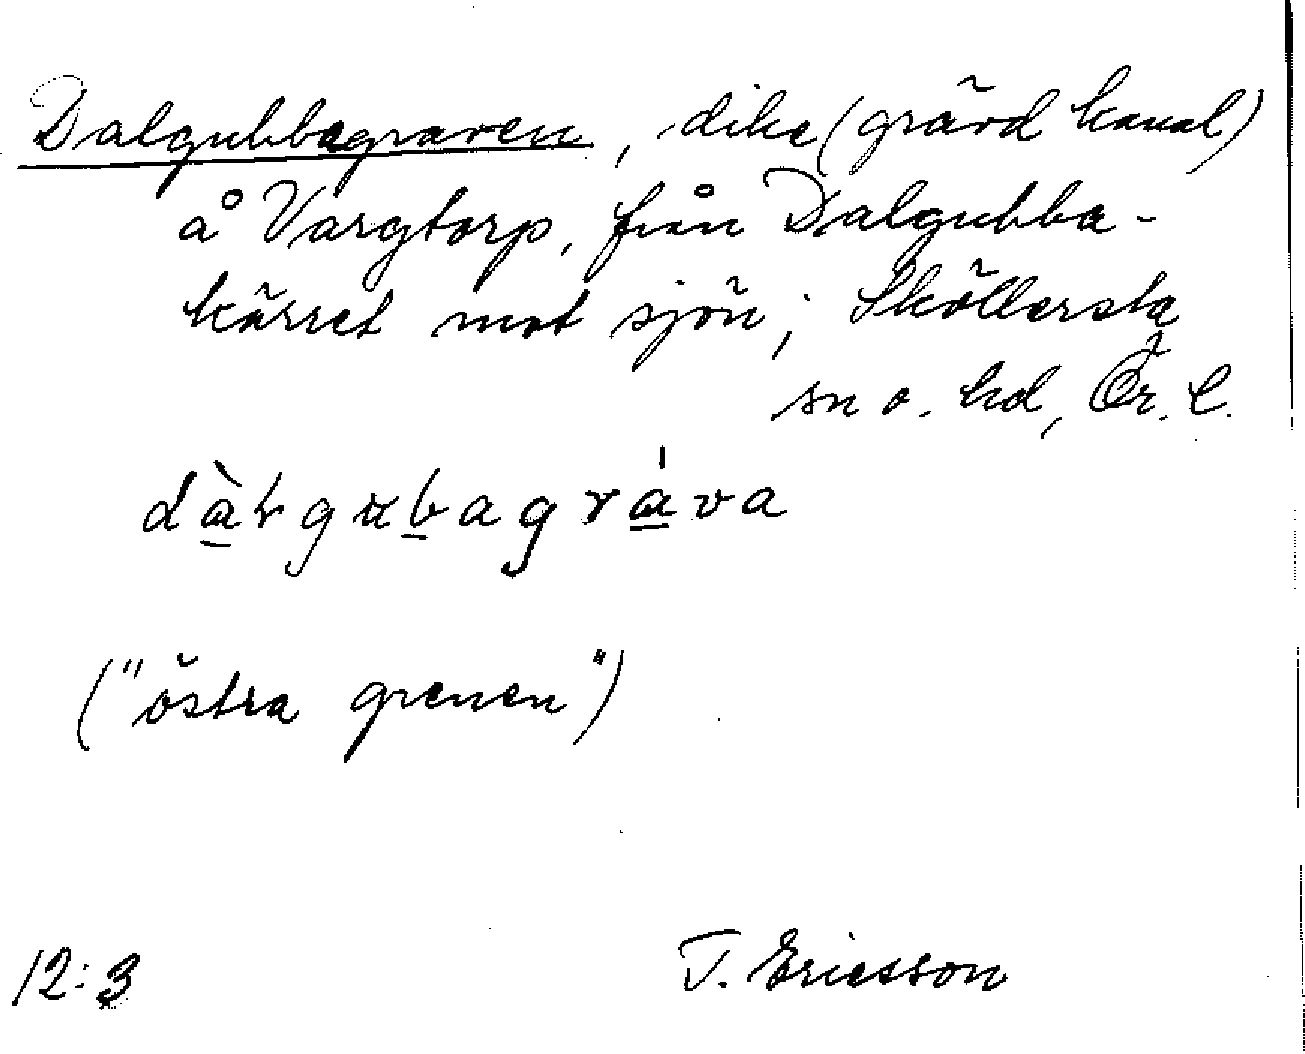 Dalgubbagraven, dike (grävd kanal)
å Vargtorp, från Dalgubba-
kärret mot sjön; Sköllersta
sn o. hd, Ör. l.
dàlgubagráva
("östra grenen")
12:3
T. Ericsson